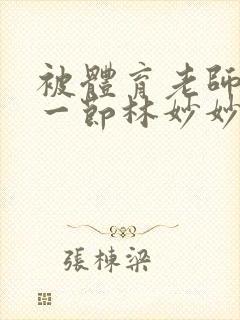 被體育老師
一節林妙妙
張棟梁